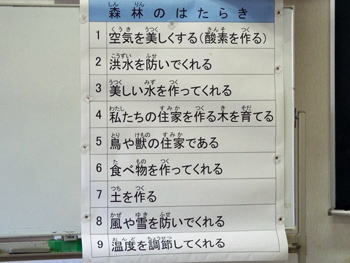 森林のはたらき
1 空気を美しくする(酸素を作る)
2 洪水を防いでくれる
3 美しい水を作ってくれる
4 私たちの住家を作る木を育てる
5 鳥や獣の住家である
6 食べ物を作ってくれる
7 土を作る
8 風や雪を防いでくれる
9 温度を調節してくれる